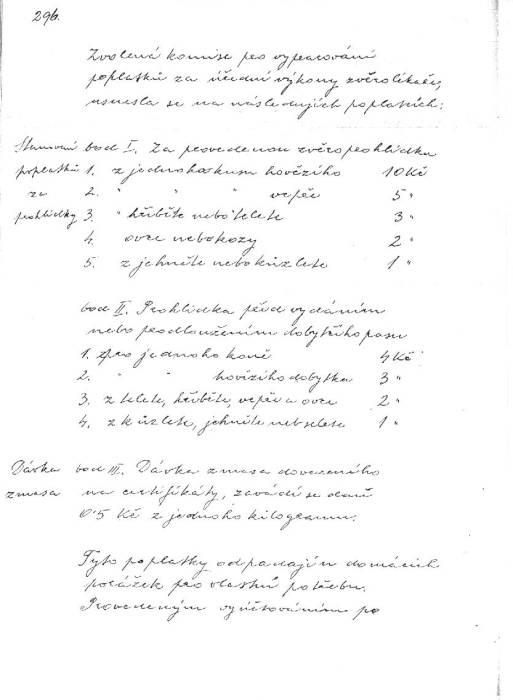 296.
Zvolená komise pro vypracování
poplatků za úřední výkony zvěrolékaře,
usnesla se na následujích poplatcích:
Stanovení bod I. Za provedenou zvěroprohlídku
poplatků 1. z jednoho kusu hovězího 10 Kč
za 2. " " vepře 5 "
prohlídky 3. " hříběte nebo telete 3 "
4. ovce nebo kozy 2 "
5. z jehněte nebo kůzlete 1 "
bod II. Prohlídka před vydáním
nebo prodloužením dobytčího pasu
1. pro jednoho koně 4 Kč
2. " " hovězího dobytka 3 "
3. z telete, hříběte, vepře a ovce 2 "
4. z kůzlete, jehněte neb selete 1 "
Dávka bod III. Dávka z masa dovezeného
z masa na certifikáty, zavádí se daně
0'5 Kč z jednoho kilogramu.
Tyto poplatky odpadají u domácích
porážek pro vlastní potřebu.
Provedeným vyúčtováním po